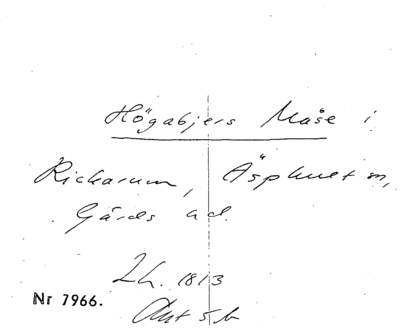 Högabjers Måse i
Rickarum, Äsphult sn,
Gärds hd.
Lh. 1813
Nr 7966.
Avt 5 b